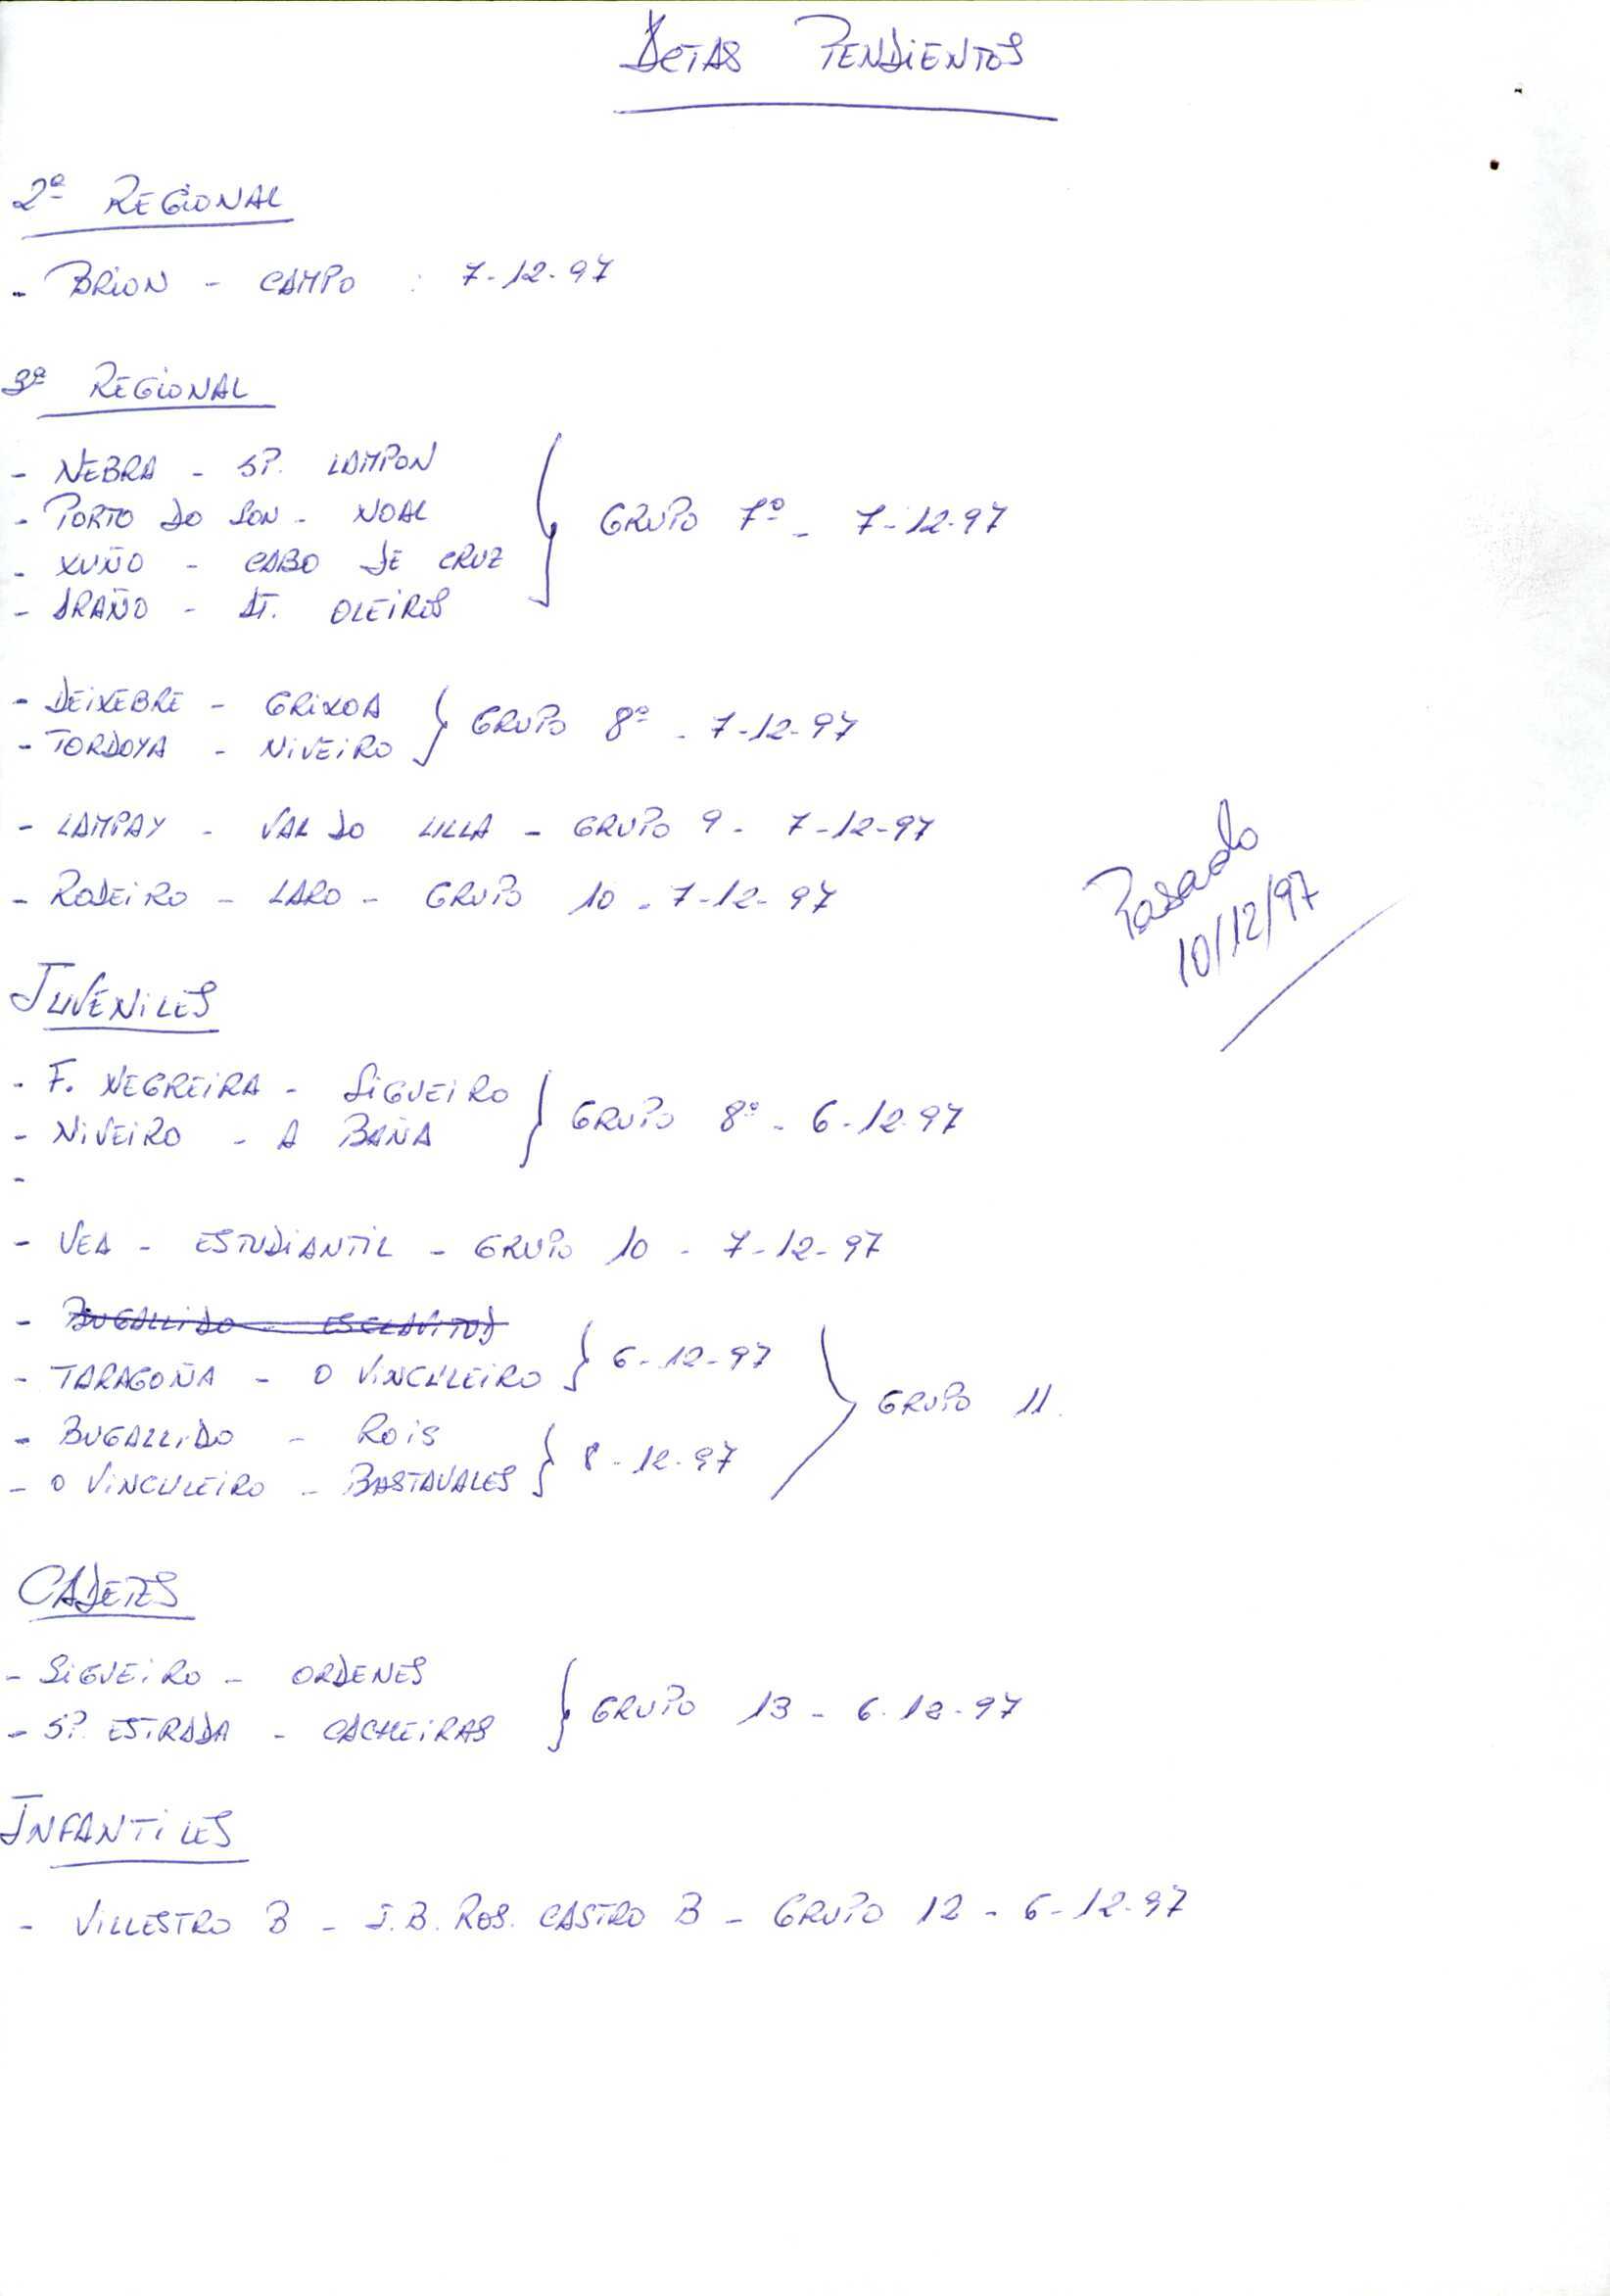 ACTAS PENDIENTES
2ª REGIONAL
- BRION - CAMPO : 7-12-97
3ª REGIONAL
- NEBRA - SP. LAMPON
- PORTO DO SON - NOAL
- XUÑO - CABO DE CRUZ
- ARAÑO - AT. OLEIROS
GRUPO 7º - 7-12-97
- DEIXEBRE - GRIXOA
- TORDOYA - NIVEIRO
GRUPO 8º - 7-12-97
- LAMPAY - VAL DO ULLA - GRUPO 9 - 7-12-97
- RODEIRO - LARO - GRUPO 10 - 7-12-97
Pasado
10/12/97
JUVENILES
- F. NEGREIRA - SIGUEIRO
- NIVEIRO - A BAÑA
GRUPO 8º - 6-12-97
-
- VEA - ESTUDIANTIL - GRUPO 10 - 7-12-97
- BUGALLIDO - ESCLAVITUD
- TARAGOÑA - O VINCULEIRO
6-12-97
- BUGALLIDO - ROIS
- O VINCULEIRO - BASTAVALES
8-12-97
GRUPO 11.
CADETES
- SIGUEIRO - ORDENES
- SP. ESTRADA - CACHEIRAS
GRUPO 13 - 6-12-97
INFANTILES
- VILLESTRO B - J.B. ROS. CASTRO B - GRUPO 12 - 6-12-97